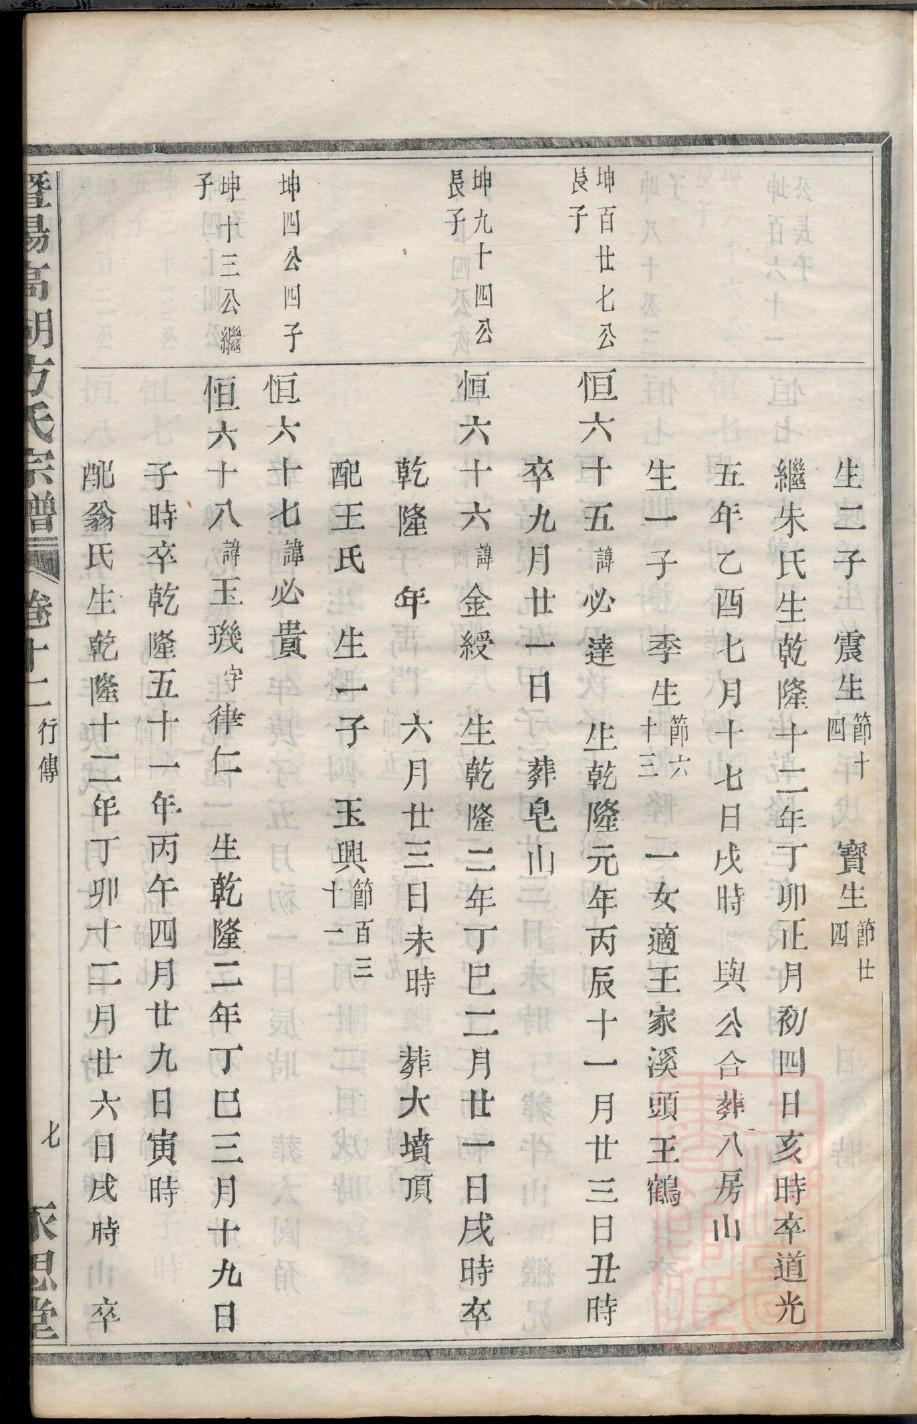 生二子　震生節十四　寳生節廿四
繼朱氏生乾隆十二年丁卯正月初四日亥時卒道光
五年乙酉七月十七日戌時　與公合葬八房山
生一子　季生節六十三　一女適王家溪頭王鶴
坤百廿七公長子
恒六十五諱必達　生乾隆元年丙辰十一月廿三日丑時
卒九月廿一日　葬皂山
坤九十四公長子
恒六十六諱金綬　生乾隆二年丁巳二月廿一日戌時卒
乾隆　年　六月廿三日未時　葬大墳頂
配王氏　生一子　玉興節百三十一
坤四公四子
恒六十七諱必貴
坤十三公繼子
恒六十八諱玉璣字律仁　生乾隆二年丁巳三月十九日
子時卒乾隆五十一年丙午四月廿九日寅時
配翁氏生乾隆十二年丁卯十二月廿六日戌時　卒
暨陽高湖方氏宗譜　卷十二　行傳　七　永思堂